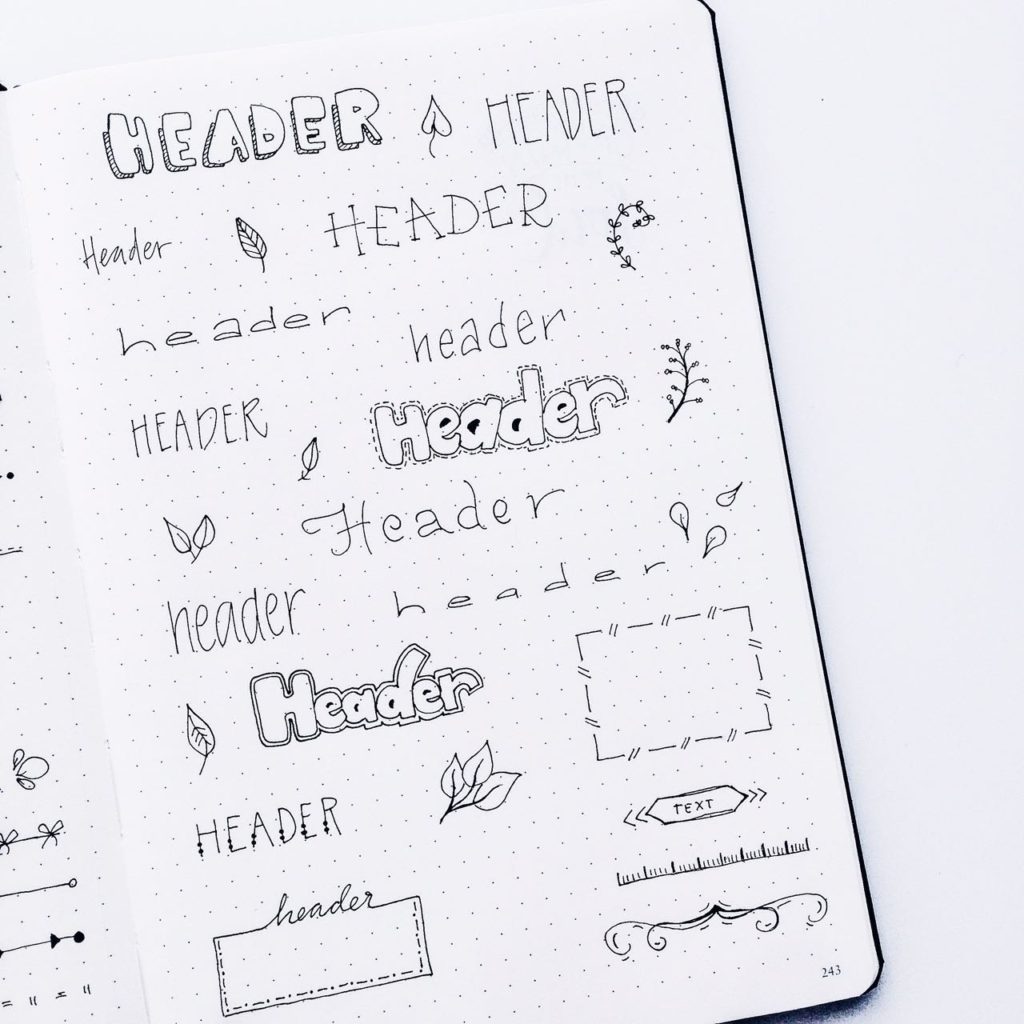 HEADER HEADER
Header HEADER
header header
HEADER Header
Header
header header
Header
TEXT
HEADER
header
243